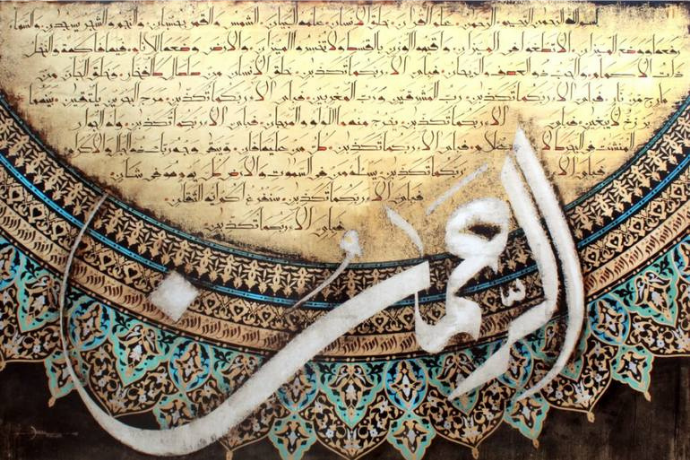 بسم الله الرحمن الرحيم الرحمن علم القران خلق الانسان علمه البيان الشمس و القمر بحسبان و النجم و الشجر يسجدان والسما
رفعها و وضع الميزان الا تطغوا في الميزان و اقيموا الوزن بالقسط ولا تخسروا الميزان و الارض وضعها للانام فيها فاكهة و النخل
ذات الاكمام و الحب ذو العصف و الريحان فباي الا ربكما تكذبان خلق الانسان من صلصال كالفخار و خلق الجان من
مارج من نار فباي الا ربكما تكذبان رب المشرقين ورب المغربين فباي الا ربكما تكذبان مرج البحرين يلتقيان بينهما
برزخ لا يبغيان فباي الا ربكما تكذبان يخرج منهما اللولو و المرجان فباي الا ربكما تكذبان وله الجوار
المنشئت في البحر كالاعلام كل من عليها فان و يبقى وجه ربك ذو الجلال و الاكرام
فباي الا ربكما تكذبان يسئله من في السموت و الارض كل يوم هو في شان
فباي الا ربكما تكذبان سنفرغ لكم ايه الثقلان
فباي الا ربكما تكذبان
الرحمان